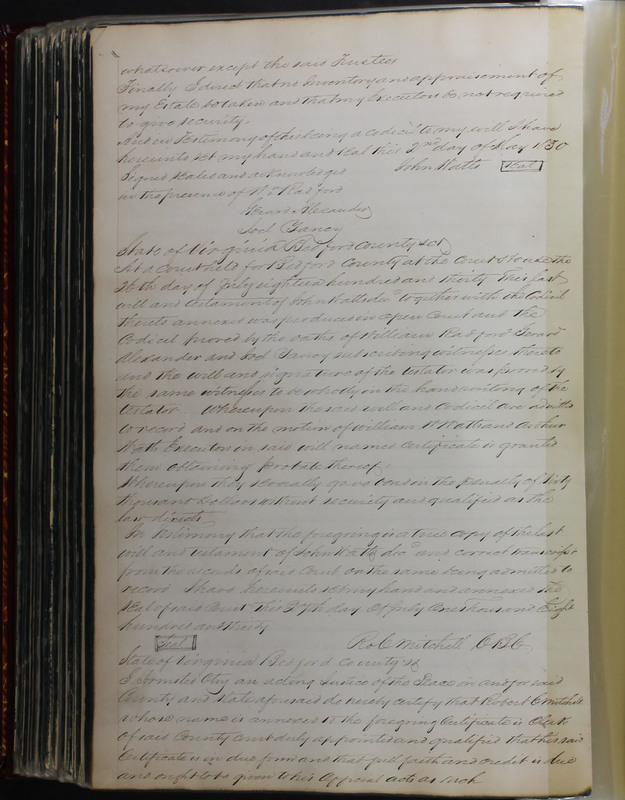 whatsoever except the said Trustees
Finally I direct that no Inventory and appraisement of
my Estate be taken and that my Executors be not required
to give security.
And in Testimony of this being a codicil to my will I have
hereunto set my hand and seal this 2nd day of May 1830
Signed sealed and acknowledged John Watts Seal
in the presence of Wm Radford
Gerard Alexander
Joel Yancy
State of Virginia Bedford County sct
At a court held for Bedford County at the Court House the
26th day of July eighteen hundred and thirty This last
will and testament of John Watts decd together with the Codicil
thereto annexed was produced in open Court and the
Codicil proved by the oaths of William Radford Gerard
Alexander and Joel Yancy subscribing witnesses thereto
and the will and signature of the testator was proved by
the same witnesses to be wholly in the handwriting of the
testator Whereupon the said will and codicil are admitted
to record and on the motion of William Watts and Arthur
Watts Executors in said will named Certificate is granted
them obtaining probate thereof.
Whereupon they severally gave bond in the penalty of sixty
thousand Dollars without security and qualified as the
law directs
In testimony that the foregoing is a true copy of the last
will and testament of John Watts decd and correct transcript
from the records of said Court on the same being admitted to
record I have hereunto set my hand and annexed the
Seal of said Court this 27th day of July One thousand Eight
hundred and thirty
Seal Ro C Mitchell C B C
State of Virginia Bedford County sct
I Otey an acting Justice of the Peace in and for said
County and State aforesaid do hereby certify that Robert C Mitchell
whose name is annexed to the foregoing Certificate is Clerk
of said County Court duly appointed and qualified that his said
Certificate is in due form and that full faith and credit is due
and ought to be given to his Official acts as such